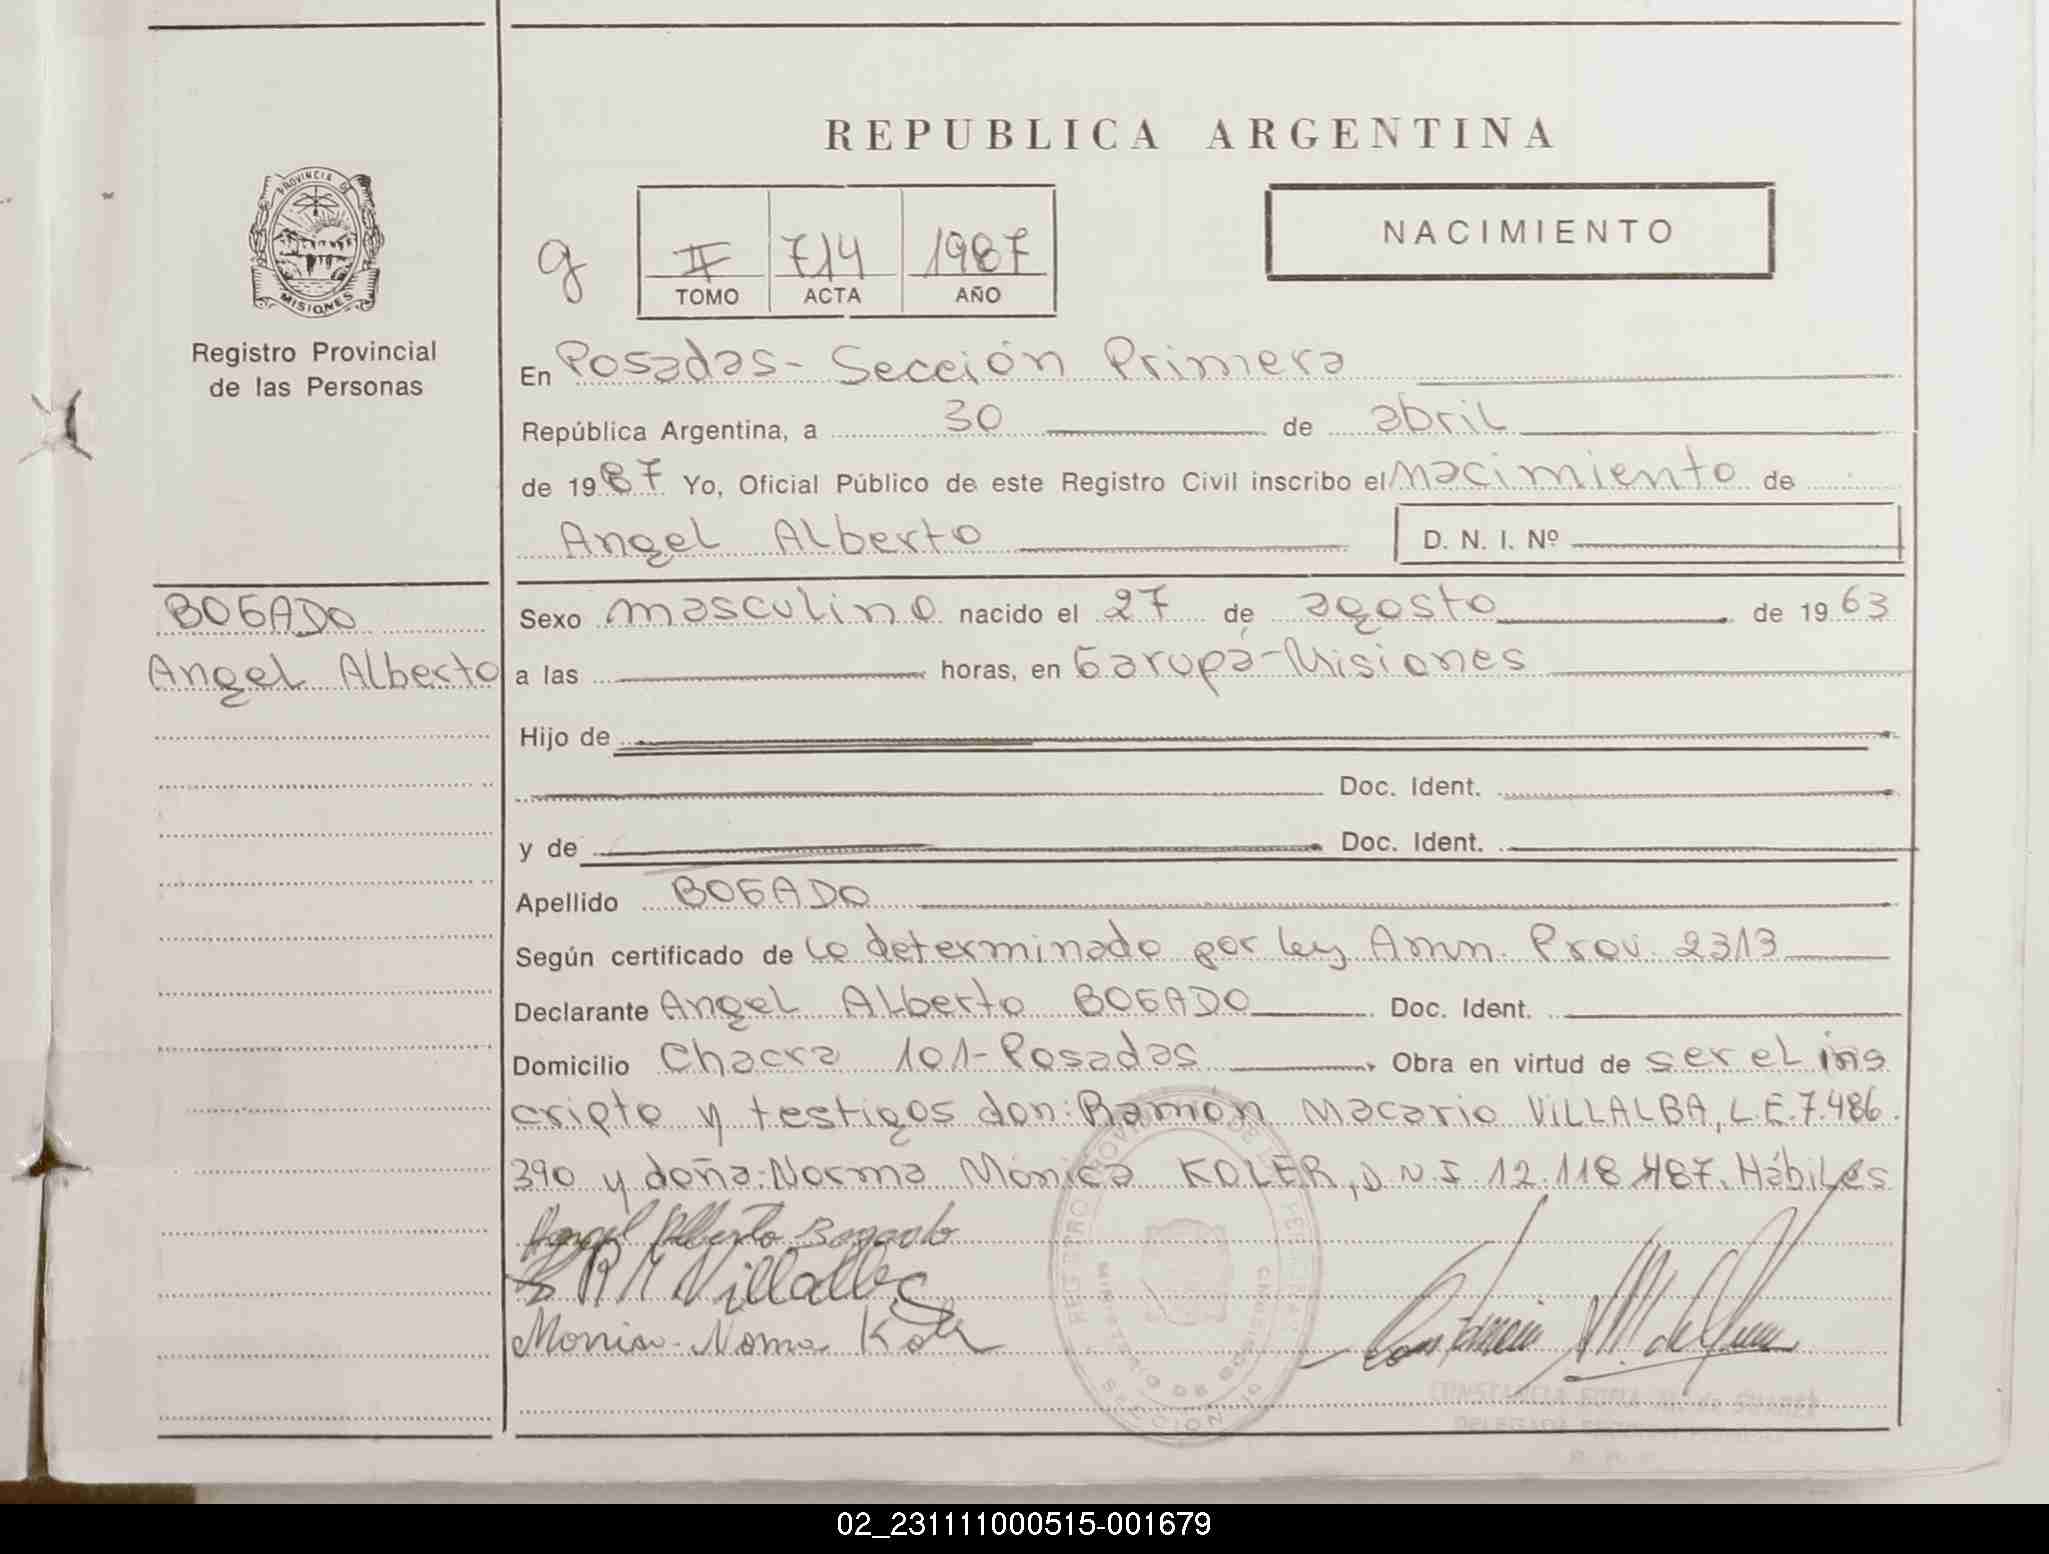 REPUBLICA ARGENTINA
PROVINCIA DE
MISIONES
Registro Provincial
de las Personas
g
II 714 1987
TOMO ACTA AÑO
NACIMIENTO
En Posadas- Sección Primera
República Argentina, a 30 de abril
de 1987 Yo, Oficial Público de este Registro Civil inscribo el nacimiento de
Angel Alberto D. N. I. Nº
BOGADO
Angel Alberto
Sexo masculino nacido el 27 de agosto de 1963
a las horas, en Garupá-Misiones
Hijo de
Doc. Ident.
y de Doc. Ident.
Apellido BOGADO
Según certificado de lo determinado por ley Amn. Prov. 2313
Declarante Angel Alberto BOGADO Doc. Ident.
Domicilio Chacra 101-Posadas Obra en virtud de ser el ins
cripto y testigos don: Ramón Macario VILLALBA, L.E.7.486.
390 y doña: Norma Mónica KOLER, D.N.I 12.118.487. Hábiles
Angel Alberto Bogado
R M Villalba
REGISTRO PROVINCIAL DE LAS PERSONAS
MINISTERIO DE GOBIERNO
SECCION
CONSTANCIA
DELEGADA
02_231111000515-001679